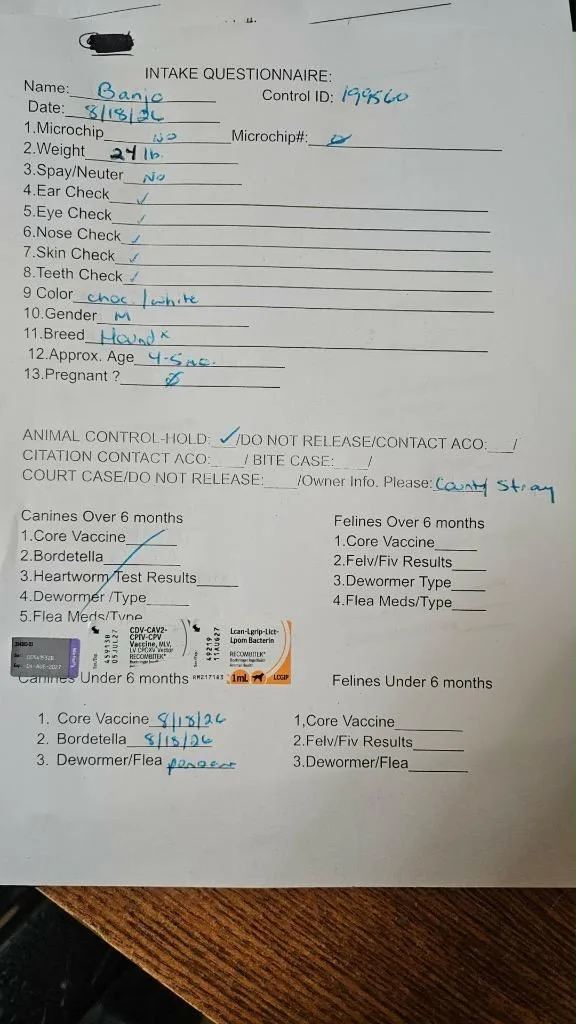 INTAKE QUESTIONNAIRE:
Name: Banjo Control ID: 199560
Date: 8/18/26
1.Microchip NO Microchip#: Ø
2.Weight 24 lb.
3.Spay/Neuter No
4.Ear Check ✓
5.Eye Check ✓
6.Nose Check ✓
7.Skin Check ✓
8.Teeth Check ✓
9 Color choc./white
10.Gender M
11.Breed Hound x
12.Approx. Age 4-5 mo.
13.Pregnant ? Ø
ANIMAL CONTROL-HOLD: ✓/DO NOT RELEASE/CONTACT ACO:___/
CITATION CONTACT ACO:____/ BITE CASE:____/
COURT CASE/DO NOT RELEASE:____/Owner Info. Please: County Stray
Canines Over 6 months
1.Core Vaccine
2.Bordetella
3.Heartworm Test Results
4.Dewormer /Type
5.Flea Meds/Type
Felines Over 6 months
1.Core Vaccine
2.Felv/Fiv Results
3.Dewormer Type
4.Flea Meds/Type
14-AUG-2027
45913B
05JUL27
CDV-CAV2-
CPIV-CPV
Vaccine, MLV,
LV CPOXV Vector
RECOMBITEK®
49219
11AUG27
Lcan-Lgrip-Lict-
Lpom Bacterin
RECOMBITEK®
Boehringer Ingelheim
Animal Health
1mL LCGIP
RM217143
Canines Under 6 months
1. Core Vaccine 8/18/26
2. Bordetella 8/18/26
3. Dewormer/Flea
Felines Under 6 months
1,Core Vaccine
2.Felv/Fiv Results
3.Dewormer/Flea